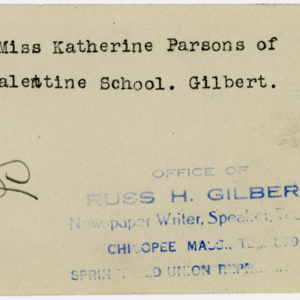 Miss Katherine Parsons of
alentine School. Gilbert.
OFFICE OF
RUSS H. GILBER
Newspaper Writer, Speaker,
CHICOPEE MASS.,
SPRIN ELD UNION